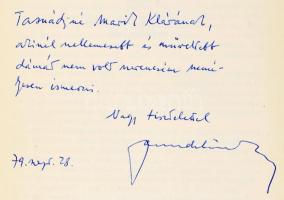 Tasnádyné Marik Klárának,
akinél nellemesebb és műveltebb
dámát nem volt szerencsém nemé-
lyesen ismerni.
Nagy tisztelettel
79. nov. 28.